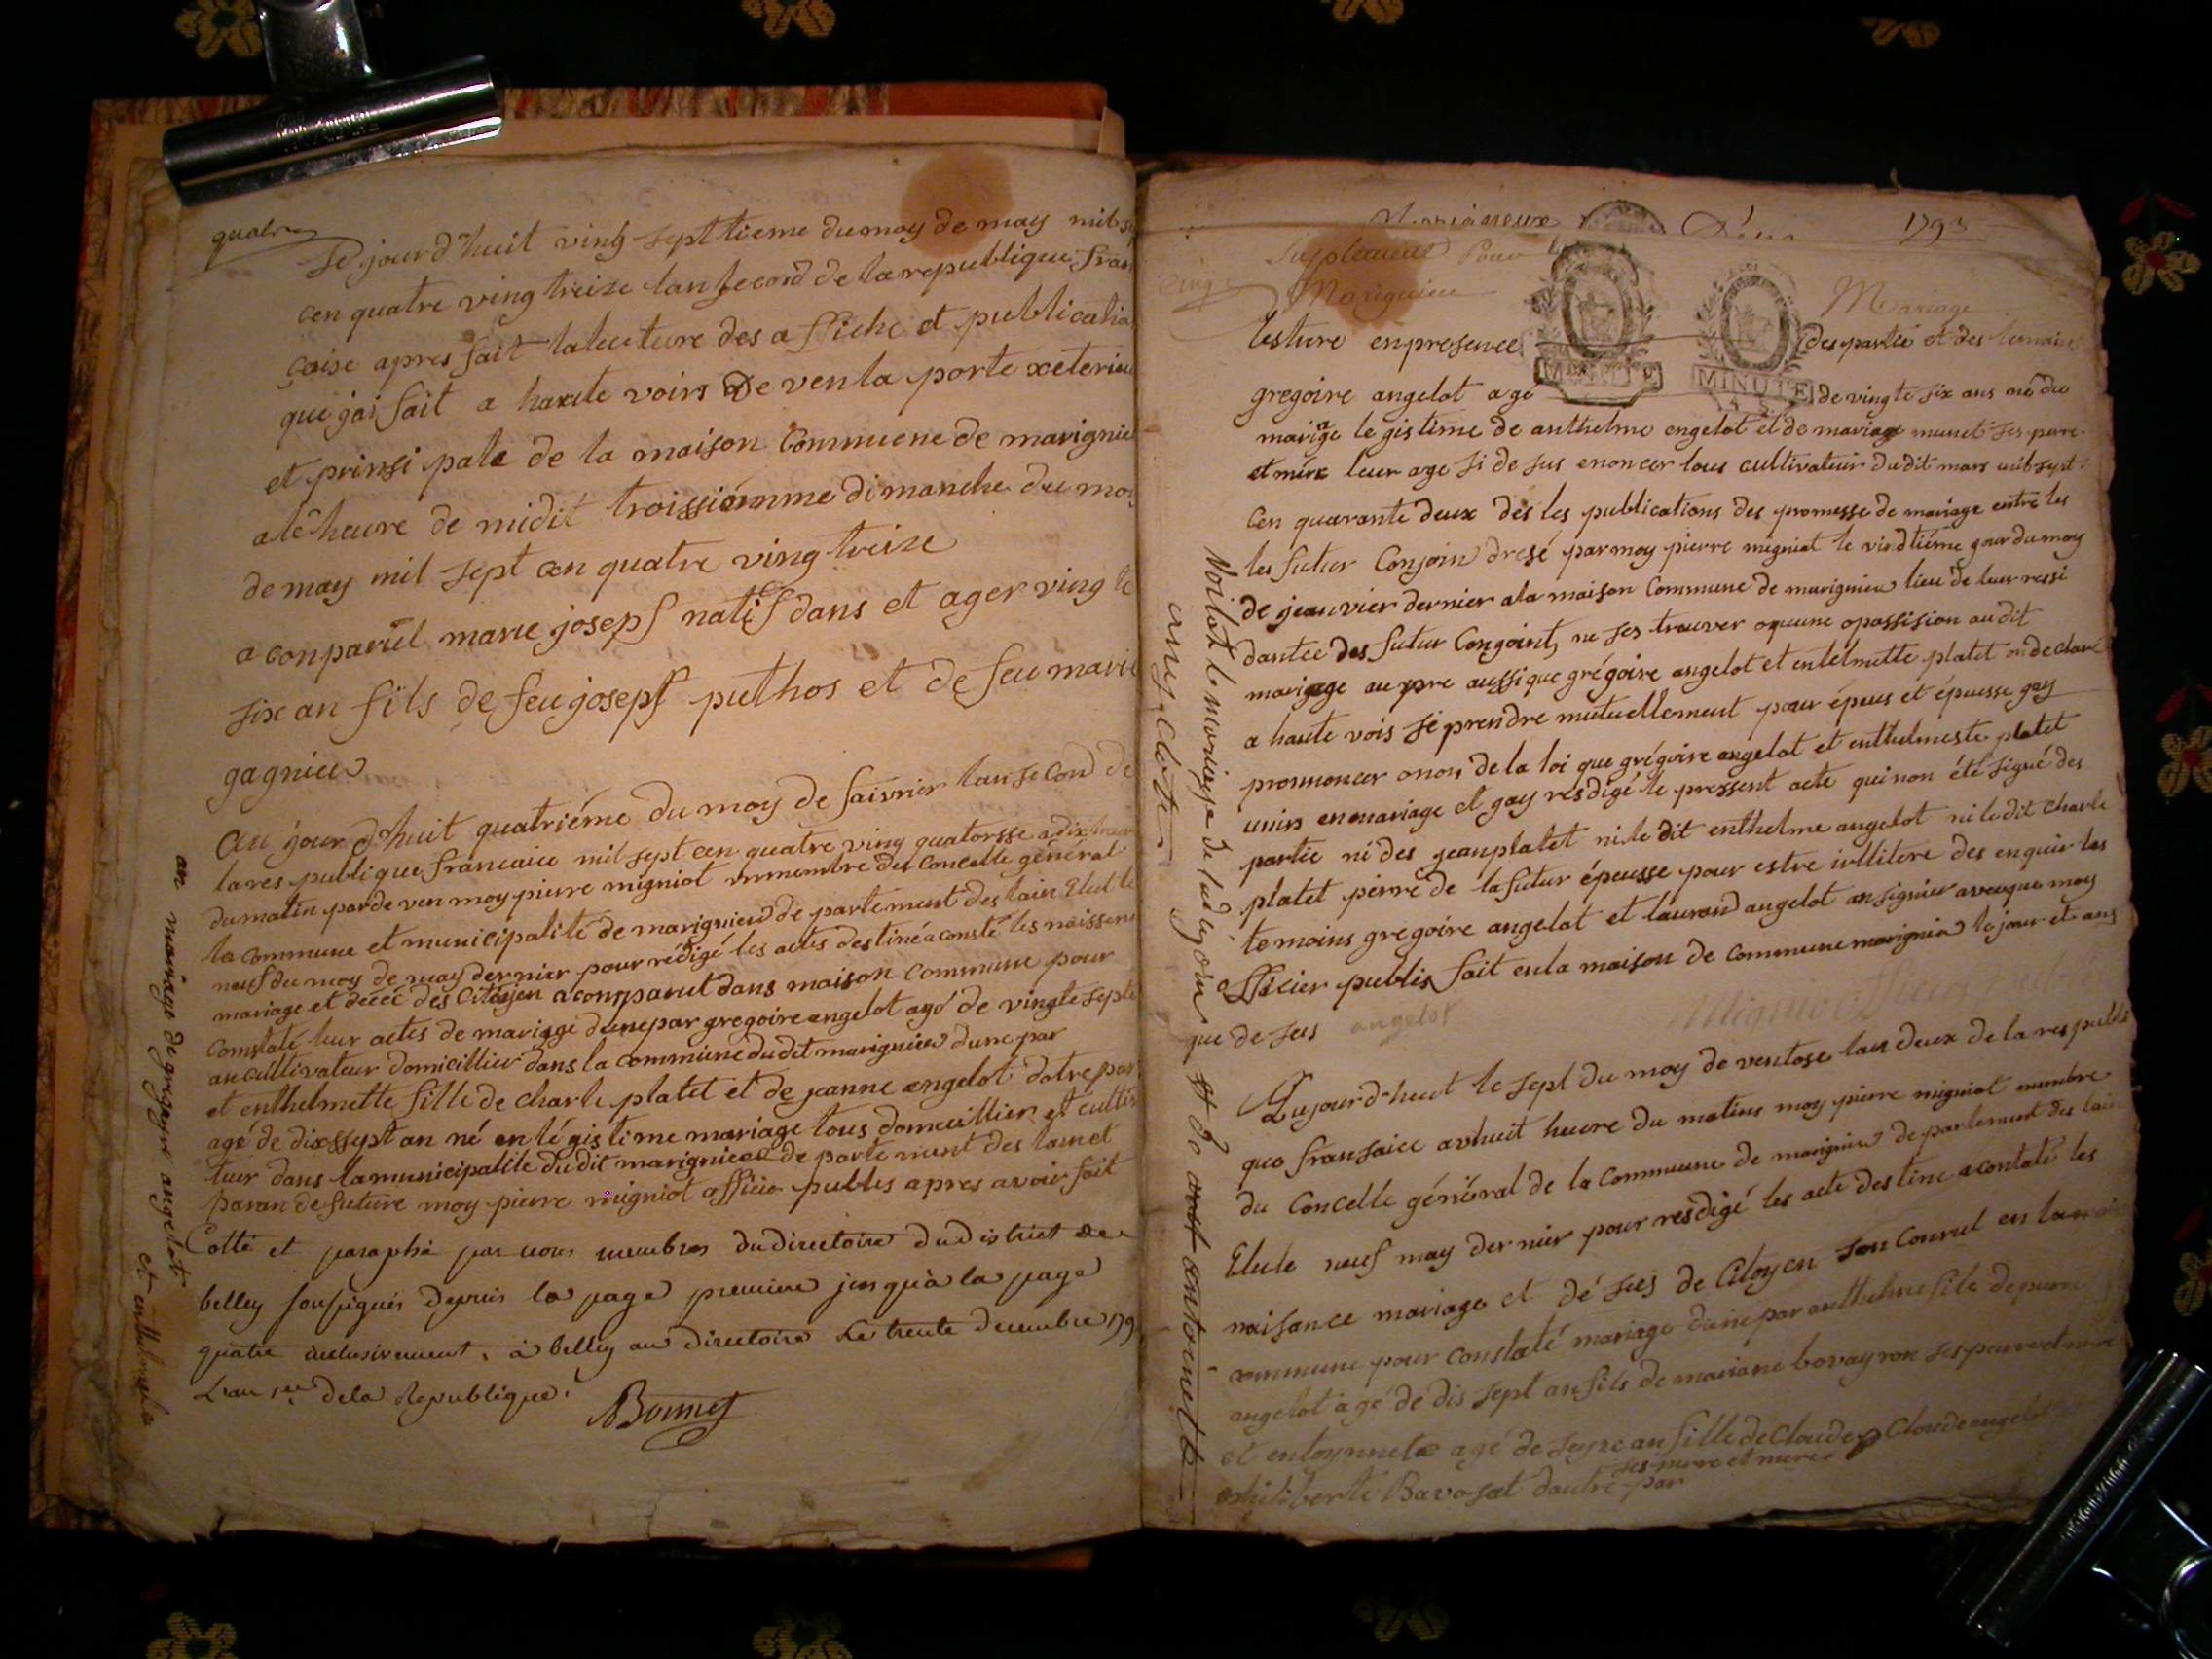 quatre
Se jourd'huit ving septtieme du moy de may mil s
cen quatre ving treize lan second de la republique fran
çaise apres fait la lecteure des affiche et publicatio
que jai fait a haute voirs de ven la porte xeterieu
et prinsi pale de la maison Commuene de marignie
a lê heure de midit troissiémme dimanche du mo
de may mil sept cen quatre ving treize
a conparül marie josepf natif dans et ager ving te
six an fils de feu josepf puthos et de feu marie
gagnieu
au jour d'huit quatriéme du moy de faivrier lan second de
la res publique francaice mil sept cen quatre ving quatorsse a dix heure
du matin par de ven moy pierre migniot mmembre des Concelle général
la commune et municipalité de marignieu de partement des lain Elut le
neuf du moy de may dernier pour rédigé les actes destiné a consté les naissenc
mariage et décéé des Citoyen a conpparut dans maison commune pour
Constaté leur actes de mariage dune par gregoire angelot agé de vingte septe
an cultivateur domicillier dans la commune du dit marignieu dune par
et enthelmette fille de charle platet et de jeanne angelot dotre par
agé de dixssept an né en légistime mariage tous domeillier et cultiv
teur dans la municipalité du dit marignieu de parte ment des lain et
paran de future moy pierre migniot officie publis apres avoir fait
Cotté et paraphé par nous membres du directoire du District de
belley soussignés depuis la page premiere jusqu'à la page
quatre inclusivement, à belley au Directoire le trente decembre 179
L'an 1er de la Republique.
Bonnet
an mariage de gregoyre angelot
et enthelmete
1793
Suplement Pour
Marignieu
Mariage
cinq
MINUTE
MINUTE
lesture en presence des partié et des temoins
gregoire angelot agé de vingte six ans né du
mariage le gistime de anthelme engelot et de mariage munet ses perre
et mere leur age si de sus enoncer tous cultivateur du dit mars mil sept
cen quarante deux dès les publications des promesse de mariage entre les
les futur Conjoin dresé par moy pierre migniot le vindtiéme gour du moy
de jeanvier dernier a la maison Commune de marignieu lieu de leur ressi
dantee des futur Congoint, ne ses trouver oqucune opassision au dit
mariage au pre aussi que grégoire angelot et entelmette platet on de claré
a haute vois se prendre mutuellement pour épeus et épeusse gay
prononcer o non de la loi que grégoire angelot et enthelmeste platet
unirs en mariage et gay resdigé le pressent acte qui non été signé des
partie ni des jean platet ni le dit enthelme angelot ni le dit charle
platet pierre de la futur épeusse pour estre inllitere des enquir les
temoins gregoire angelot et laurend angelot on signier aveuque moy
officier publis fait en la maison de commune marignieu le jour et ans
que de sus angelot Migniot
Aujourd'huit le sept du moy de ventose lan deux de la res publi
que fransaice avhuit heure du matins moy pierre migniot membre
du Concelle général de la commune de marignieu de partement des lain
Elule neuf may dernier pour resdigé les acte destine a contaté les
naisance mariage et dé sés de Citoyen son Conrul en la
commune pour constaté mariage dune par anthelme fils de pierre
angelot agé de dis sept an fils de mariane bovayron ses perre et mere
et entoynnete agé de seyze an fille de Claude Claude angelot
ses perre et mere
philiberte Bavosat dautre par
Voilat le mariage de ludegoin et de entoinette
angelot